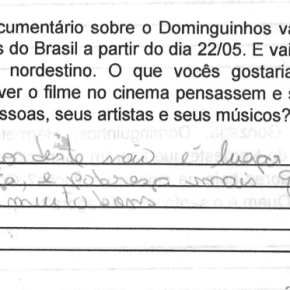 cumentário sobre o Dominguinhos va
s do Brasil a partir do dia 22/05. E vai
nordestino. O que vocês gostaria
ver o filme no cinema pensassem e s
essoas, seus artistas e seus músicos?
ordeste não é lugar
e pobreza mais q
muito bons